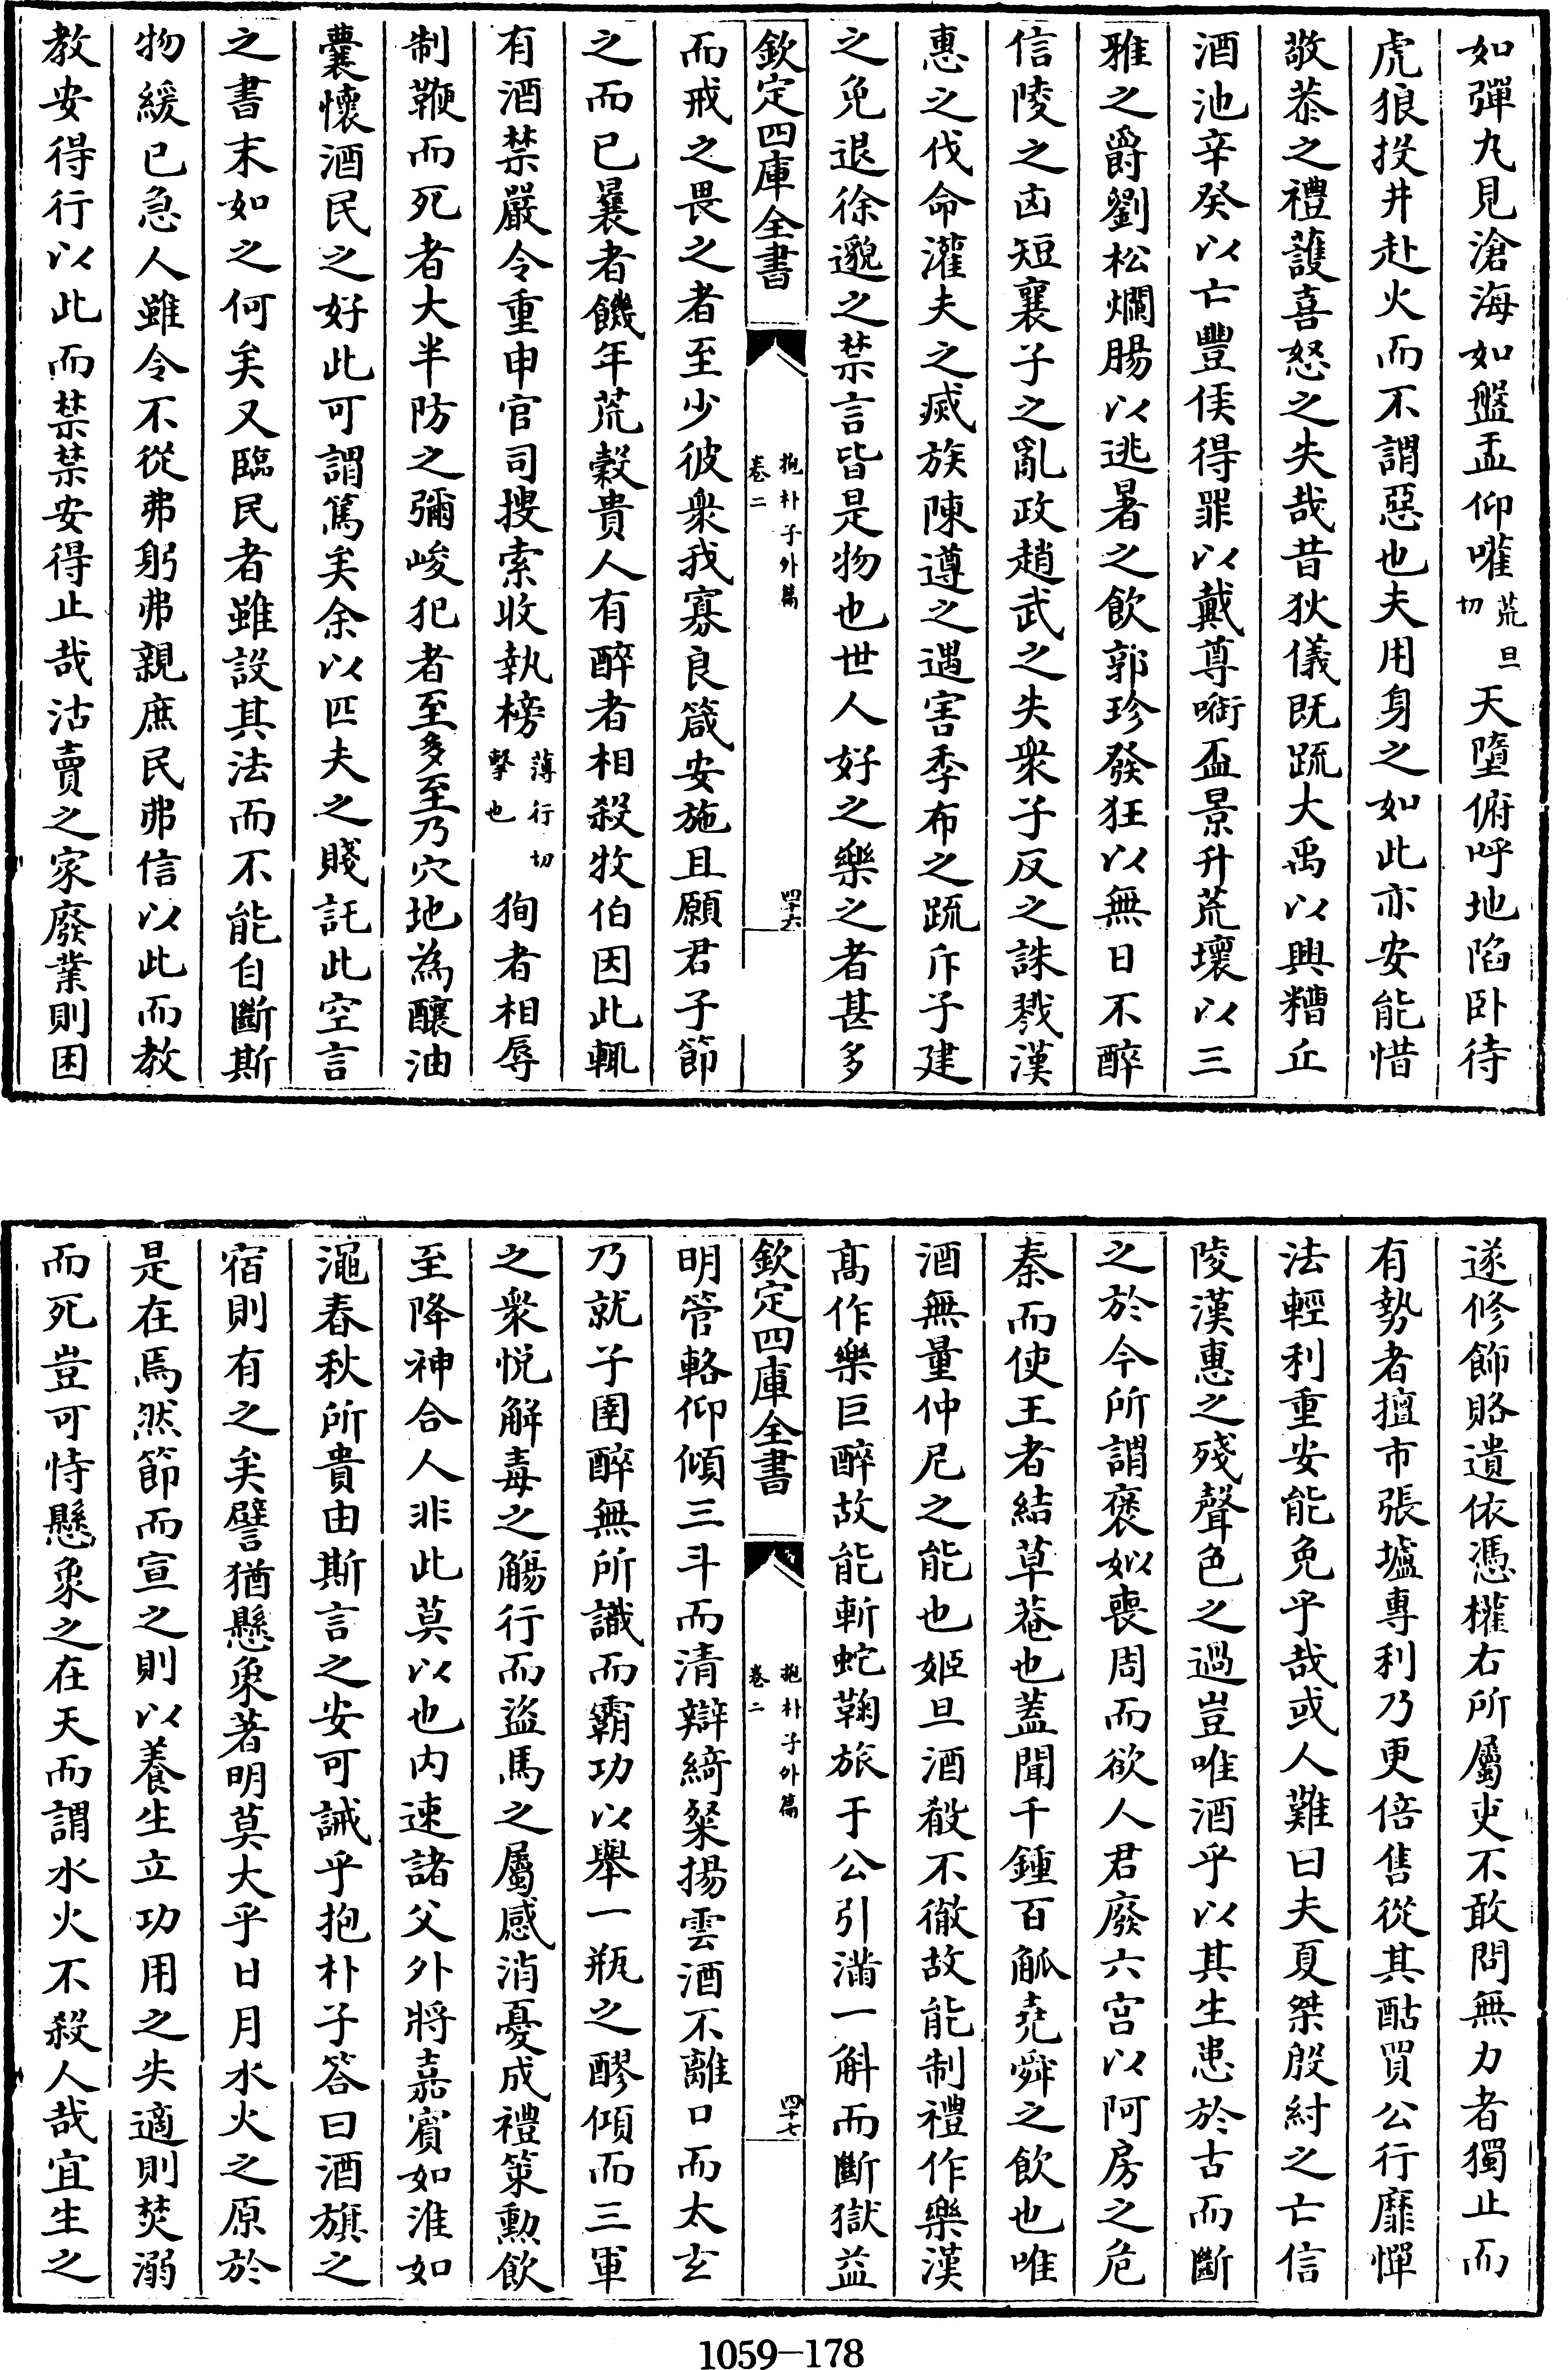 如彈丸見滄海如盤盂仰嚾荒旦切天墮俯呼地陷卧待
虎狼投井赴火而不謂惡也夫用身之如此亦安能惜
敬恭之禮護喜怒之失哉昔狄儀既疏大禹以興糟丘
酒池辛癸以亡豐侯得罪以戴尊啣盃景升荒壞以三
雅之爵劉松爛腸以逃暑之飲郭珍發狂以無日不醉
信陵之凶短襄子之亂政趙武之失衆子反之誅戮漢
惠之伐命灌夫之滅族陳遵之遇害季布之疏斥子建
之免退徐邈之禁言皆是物也世人好之樂之者甚多
欽定四庫全書
抱朴子外篇
卷二
四十六
而戒之畏之者至少彼衆我寡良箴安施且願君子節
之而已曩者饑年荒穀貴人有醉者相殺牧伯因此輒
有酒禁嚴令重申官司搜索收執榜薄行切擊也狥者相辱
制鞭而死者大半防之彌峻犯者至多至乃穴地為釀油
囊懷酒民之好此可謂篤矣余以匹夫之賤託此空言
之書末如之何矣又臨民者雖設其法而不能自斷斯
物緩已急人雖令不從弗躬弗親庶民弗信以此而教
教安得行以此而禁禁安得止哉沽賣之家廢業則困
遂修飾賂遺依憑權右所屬吏不敢問無力者獨止而
有勢者擅市張壚專利乃更倍售從其酤買公行靡憚
法輕利重安能免乎哉或人難曰夫夏桀殷紂之亡信
陵漢惠之殘聲色之過豈唯酒乎以其生患於古而斷
之於今所謂褒姒喪周而欲人君廢六宫以阿房之危
秦而使王者結草菴也蓋聞千鍾百觚尭舜之飲也唯
酒無量仲尼之能也姬旦酒殽不徹故能制禮作樂漢
髙作樂巨醉故能斬蛇鞠旅于公引滿一斛而斷獄益
欽定四庫全書
抱朴子外篇
卷二
四十七
明管輅仰傾三斗而清辯綺粲揚雲酒不離口而太玄
乃就子圉醉無所識而霸功以舉一瓶之醪傾而三軍
之衆悅解毒之觴行而盜馬之屬感消憂成禮策勲飲
至降神合人非此莫以也内速諸父外將嘉賓如淮如
澠春秋所貴由斯言之安可誡乎抱朴子答曰酒旗之
宿則有之矣譬猶懸象著明莫大乎日月水火之原於
是在焉然節而宣之則以養生立功用之失適則焚溺
而死豈可恃懸象之在天而謂水火不殺人哉宜生之
1059-178